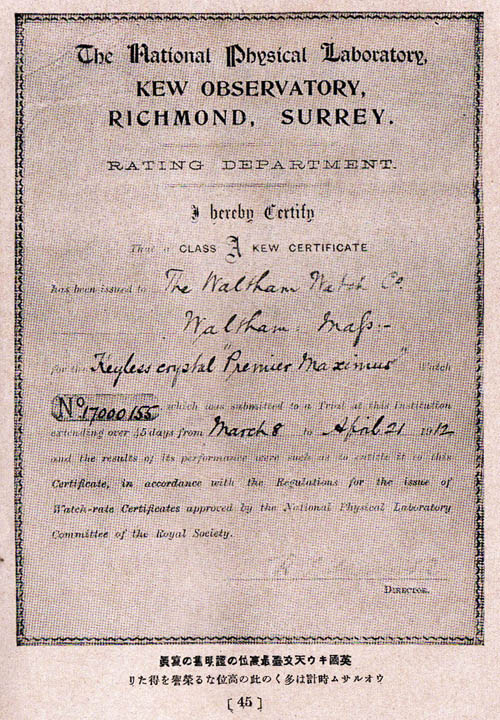 The National Physical Laboratory,
KEW OBSERVATORY,
RICHMOND, SURREY.
RATING DEPARTMENT.
I hereby Certify
That a CLASS A KEW CERTIFICATE
has been issued to The Waltham Watch Co.
Waltham. Mass:-
for the Keyless crystal "Premier Maximus" Watch
No 17000155 which was submitted to a Trial at this Institution
extending over 45 days from March 8 to April 21 1912
and the results of its performance were such as to entitle it to this
Certificate, in accordance with the Regulations for the issue of
Watch-rate Certificates approved by the National Physical Laboratory
Committee of the Royal Society.
DIRECTOR.
英國キウ天文臺最高位の證明書の寫眞
ウオルサム時計は多くの此の高位なる榮譽を得たり
[ 45 ]